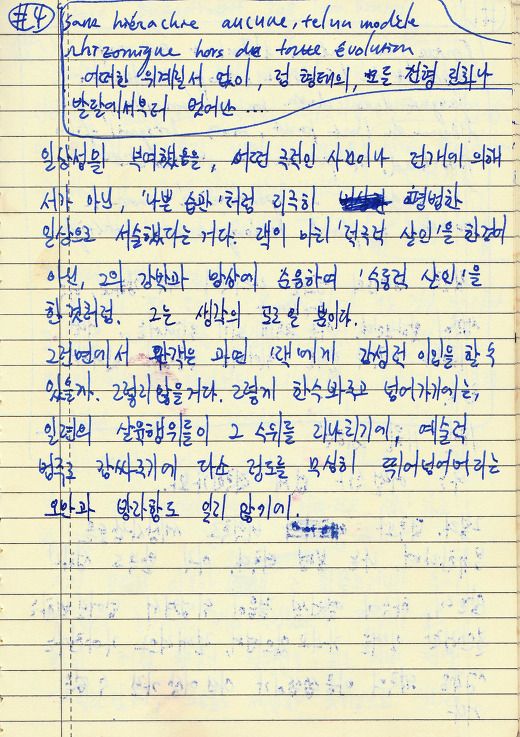 #4
sans hiérachie aucune, tel un modèle
rhizomique hors de toute évolution
어떠한 위계질서 없이, 점 형태의, 모든 진형 진화나
발달에서부터 벗어난 ...
일상성을 부여했음을, 어떤 극적인 사건이나 전개에 의해
서가 아닌, '나쁜 습관'처럼 지극히 평범한
일상으로 서술했다는 거다. 잭이 마치 '적극적 살인'을 한것에
아닌, 그의 강박과 망상에 순응하여 '수동적 살인'을
한 것처럼. 그는 생각의 포로일 뿐이다.
그러면에서 관객은 과연 '잭'에게 감성적 이입을 할 수
있을까. 그렇지 않을거다. 그렇게 한수 봐주고 넘어가기에는,
일련의 살육행위들이 그 수위를 지나치기에, 예술적
범주로 감싸주기에 다소 정도를 무성히 뛰어넘어버리는
오만과 방자함도 일지 않기에.